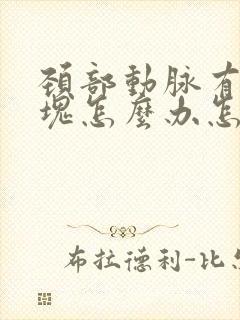 頚部動脉有
塊怎麼办怎
布拉德利-比尔